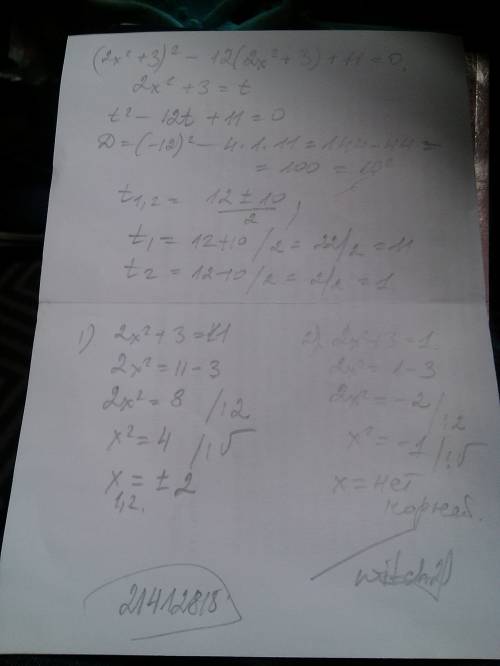 (2x²+3)² - 12(2x²+3)+11=0.
2x²+3=t
t²-12t+11=0
D=(-12)²-4·1·11=144-44=
=100=10²
t1,2= 12±10/2;
t1=12+10/2=22/2=11
t2=12-10/2=2/2=1
1) 2x²+3=11
2x²=11-3
2x²=8 /:2
x²=4 /:√
x1,2.=±2
2) 2x²+3=1.
2x²=1-3
2x²=-2 /:2
x²=-1 /:√
x=нет
корней.
21412818